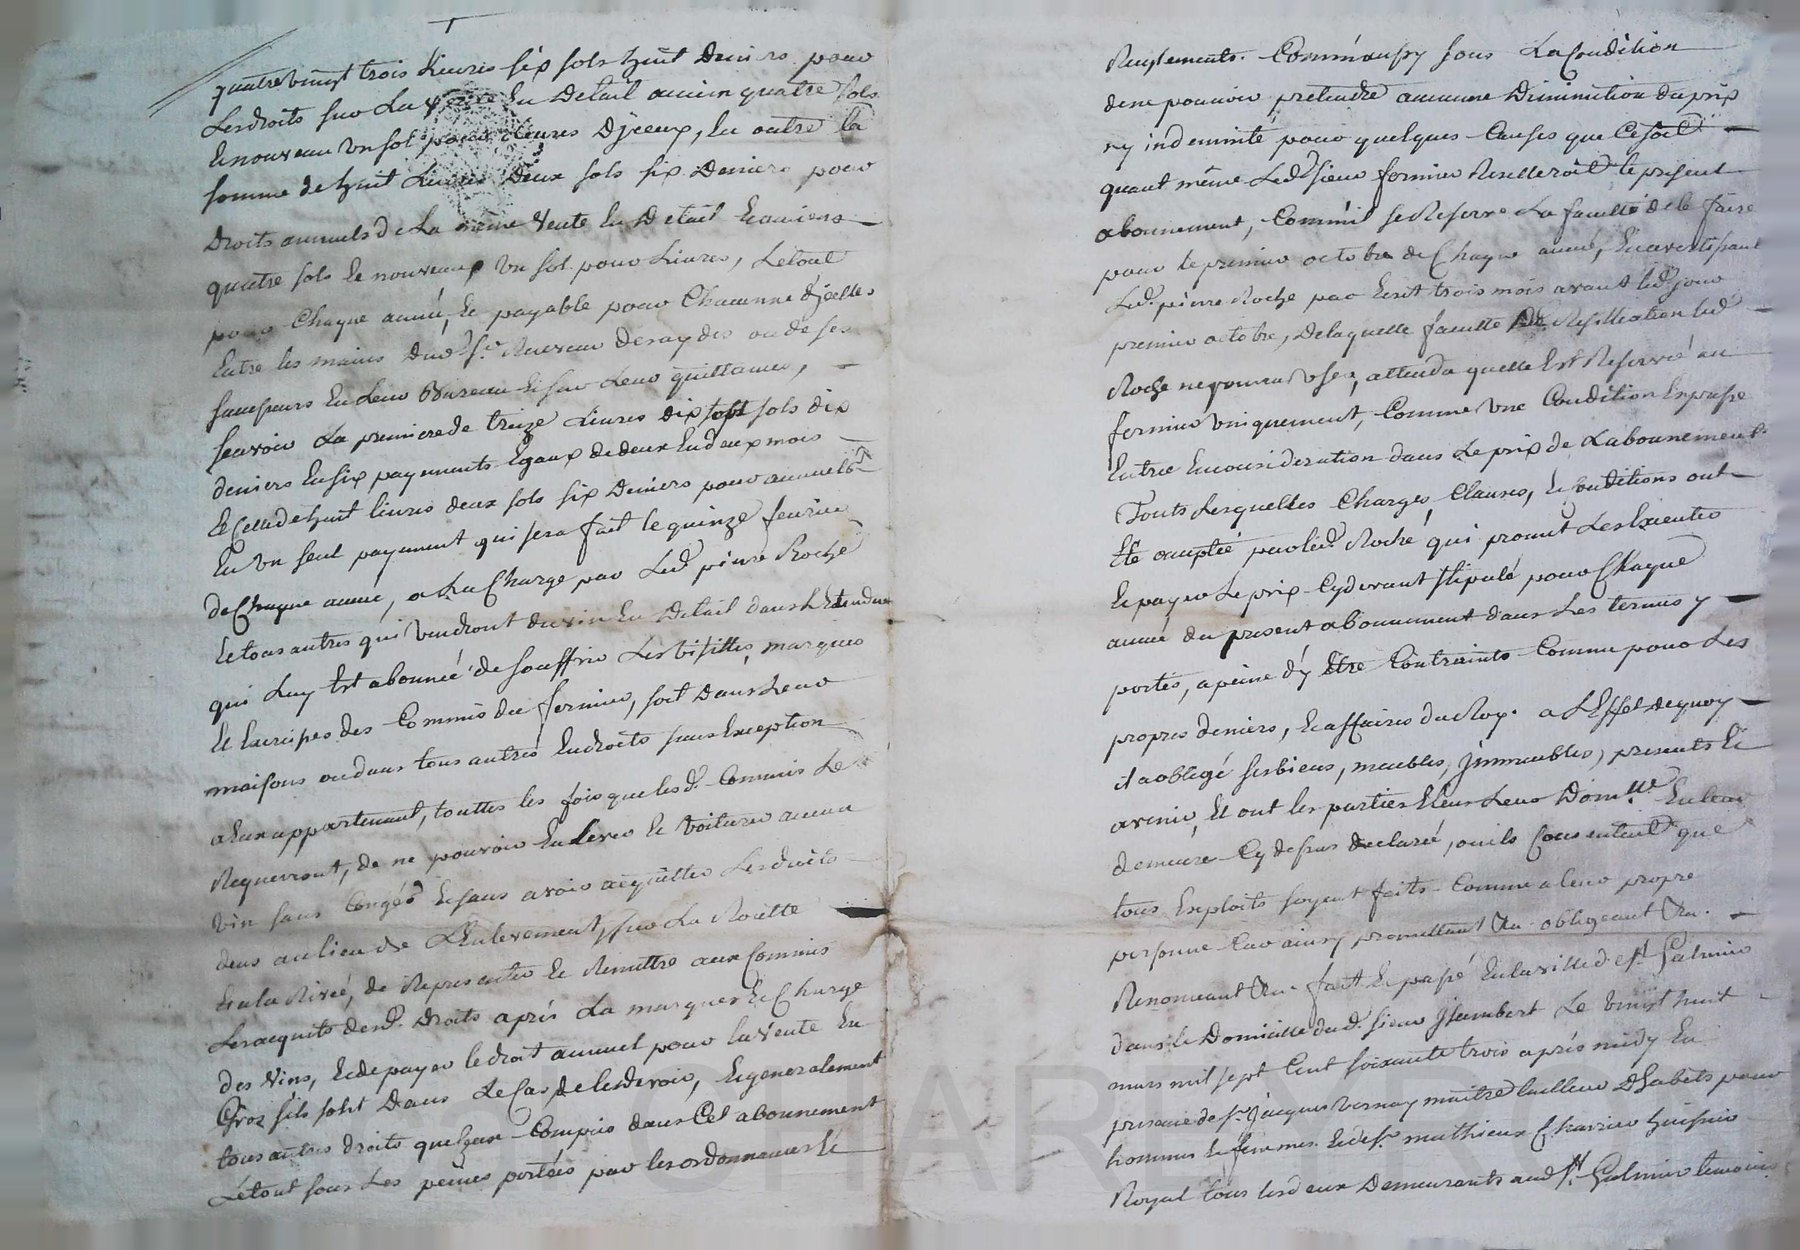 quatrevingt trois Livres six sols huit Deniers pour
Les droits sur La vente En Detail ancien quatre sols
Et nouveau un sol pour Livres D'jceux, En outre la
somme de huit Livres Deux sols six Deniers pour
Droits annuels de La même Vente En Detail Et anciens
quatre sols Et nouveaux un sol pour Livres, Le tout
pour Chaque année, Et payable pour Chacunne d'jcelles
Entre les mains dud. Sr. Receveur des aydes ou de ses
successeurs En Leur Bureau Et sur Leur quittances,
scavoir La premiere de treize Livres dix sept sols dix
deniers En six payements Egaux de deux En deux mois
Et Celle de huit livres deux sols six Deniers pour annuels
En un seul payement qui sera fait le quinze fevrier
de Chaque année, a La Charge par Led. pierre Roche
Et tous autres qui vendront du vin En Detail dans L'Etendue
qui Luy Est abonnée de souffrir Les visittes, marques
Et Exercices des Commis du fermier, soit Dans Leur
maisons ou dans tous autres Endroits sans Exception
a Eux appartenant, touttes les fois que lesd. Commis Le
Requerront, de ne pouvoir Enlever Et voiturer aucun
vin sans Congés Et sans avoir acquitter Les droits
deus au lieu de L'Enlevement, sur La Roütte
Et a la Rivée, de Representer Et Remettre aux Commis
Les acquits desd. Droits aprés La marque Et Charge
des Vins, Et de payer le droit annuel pour la Vente En
Gros s'ils sont Dans Le Cas de le devoir, Et generalement
tous autres droits que Ceux Compris dans Cet abonnement
Le tout sous Les peines portées par les ordonnances Et
Reglements. Comm'aussy sous La Condition
de ne pouvoir pretendre aucune Diminution du prix
ny indemnité pour quelques Causes que Ce soit
quant même Led. sieur fermier Resilleroit le present
abonnement, Comm'il se Reserve La faculté de le faire
pour le premier octobre de Chaque année, En avertissant
Led. pierre Roche par Ecrit trois mois avant led. jour
premier octobre, De laquelle faculté de Resilliation led.
Roche ne pourra user, attendu quelle Est Reservée au
fermier uniquement, Comme une Condition Expresse
Entree En consideration dans Le prix de L'abonnement
Touts Lesquelles Charges, Clauses, Et conditions ont
Eté acceptée par led. Roche qui promet Les Executer
Et payer Le prix Cydevant stipulé pour Chaque
année du present abonnement dans Les termes y
portés, a peine d'y Etre Contraints Comme pour Les
propres deniers, Et affaires du Roy. a L'Effet de quoy
il a obligé ses biens, meubles, jmmeubles, presents Et
avenir, Et ont les parties Eleus Leur Domlle. En leur
demeure Cy dessus declarée, ou ils Consentent que
tous Exploits soyent faits Comme a leur propre
personne Car ainsy promettant &a. obligeant &a.
Renonceant &a. fait Et passé En la ville de St. Galmier
dans le Domicille dud. sieur jllembert Le vingt huit
mars mil sept Cent soixante trois aprés midy En
presence de Sr. jacques Vernay maitre tailleur d'habits pour
hommes Et femmes Et de Sr. mathieux Charrier huissier
Royal tous les deux Demeurants aud. St. Galmier temoins